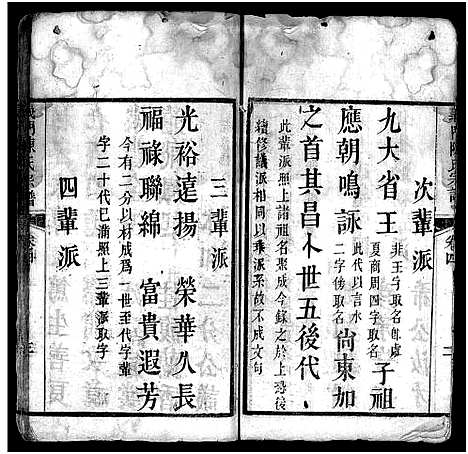 次輩派
九大省王
非王字取名即虛
夏商周四字取名
子祖
應朝鳴詠
此代以言水
二字後取名
尚東加
之首其昌卜世五後代
此輩派照上諸祖名聚成今錄之於於上恐後
續修議派相同以乘派系故不成文句
三輩派
光裕遠揚 榮華久長
福祿聯綿 富貴遐芳
今有二分以材成爲一世至代字輩
字二十代已滿照上三輩派取字
四輩派